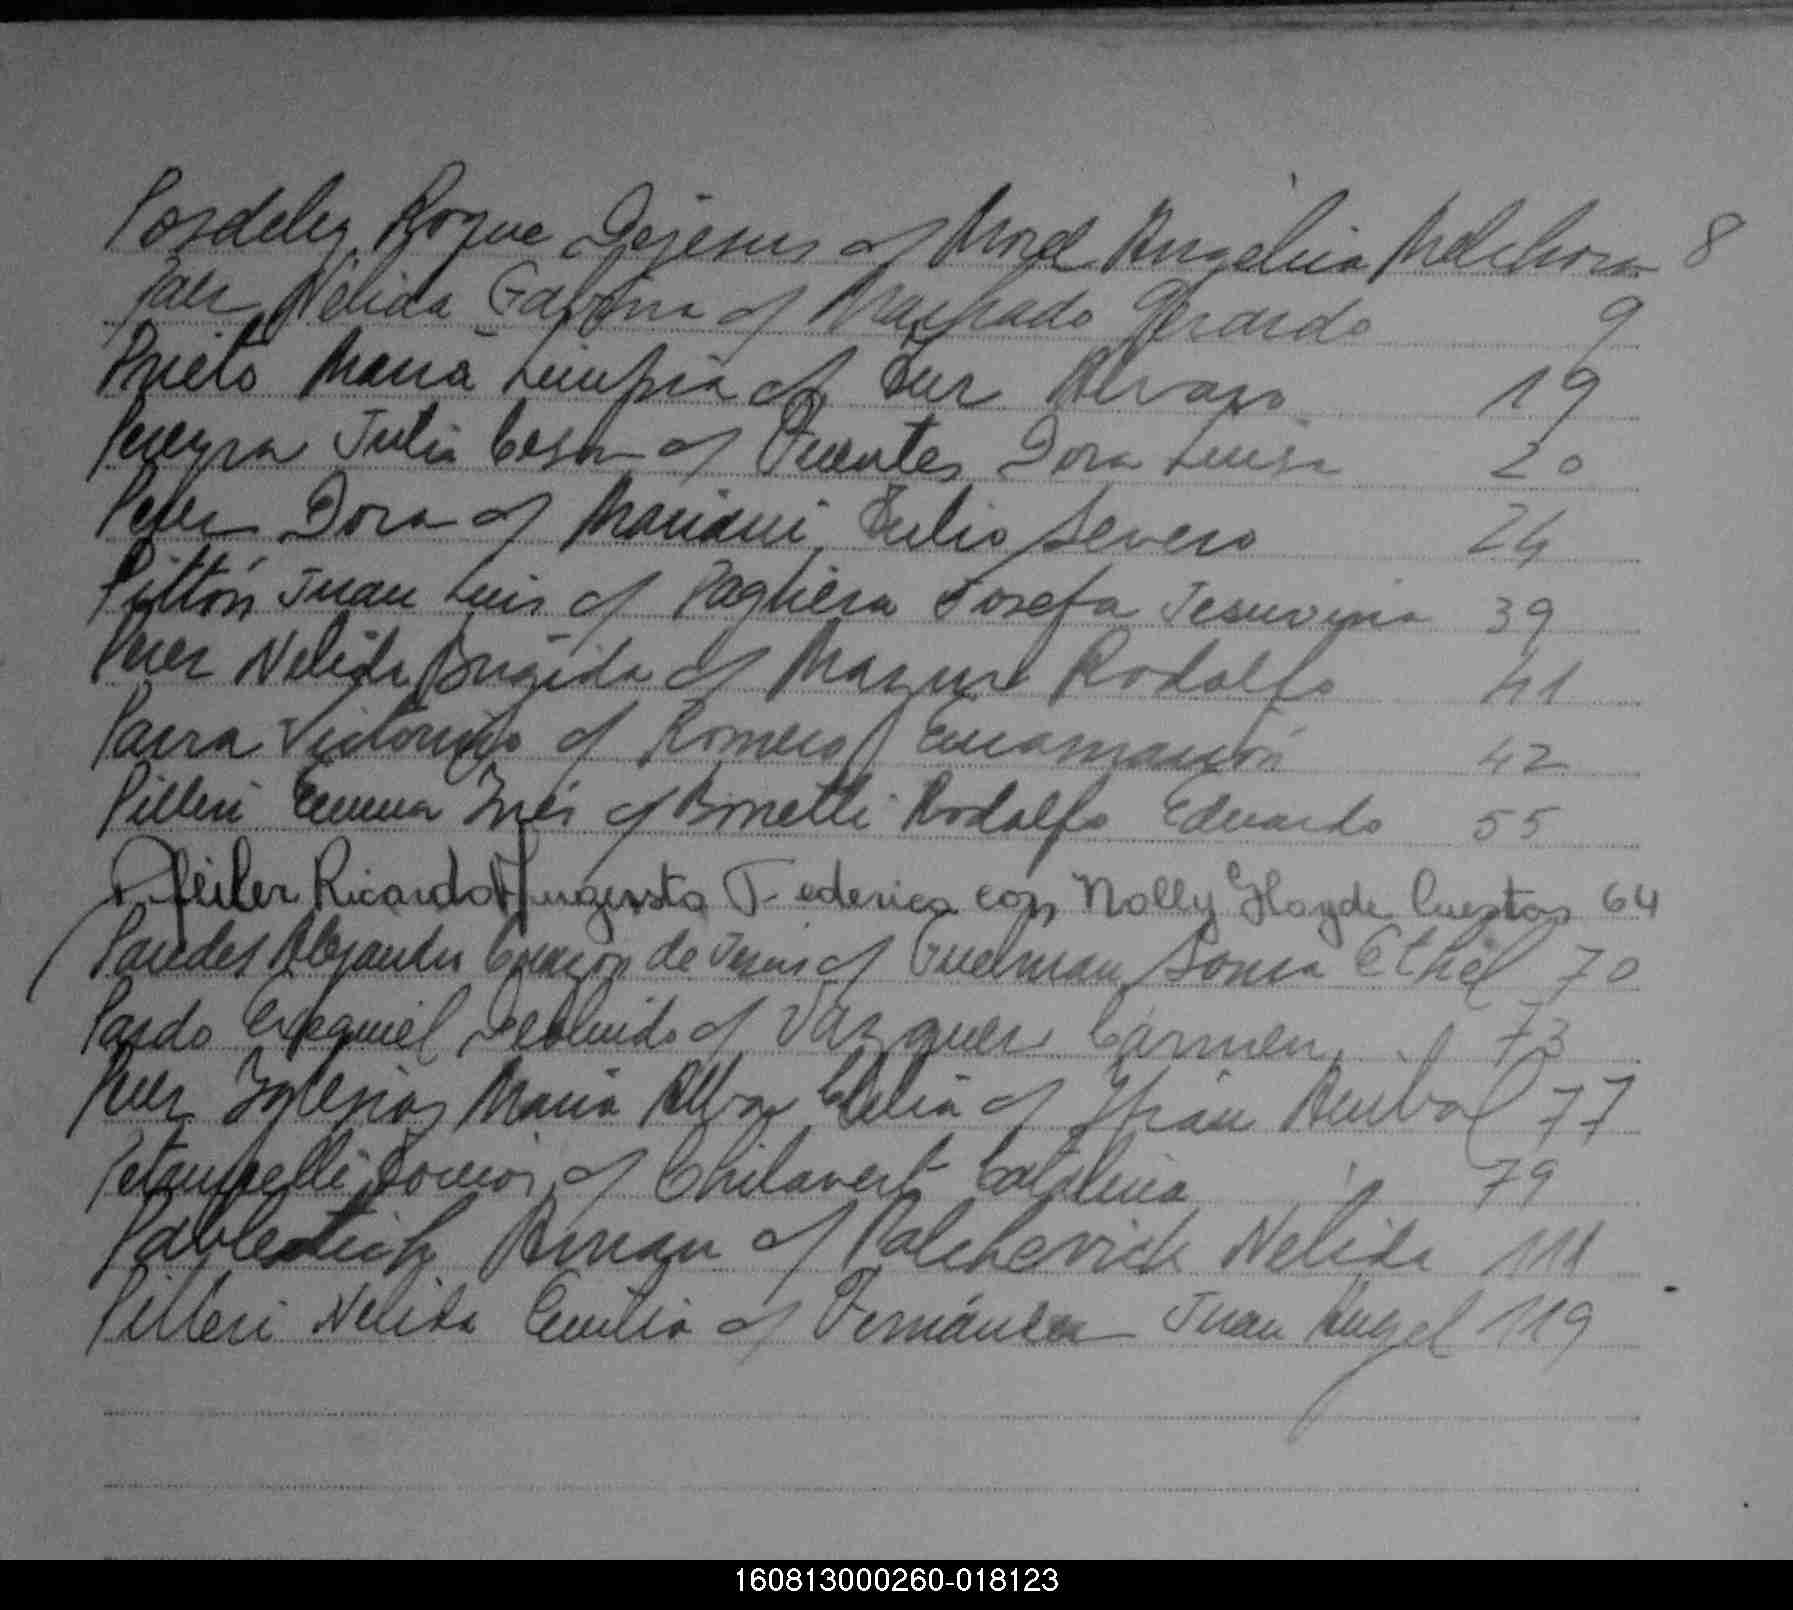 Roque Dejesus c/ Morel Angélica Melchora 8
Paez Nélida Gabina c/ Machado Gerardo 9
Prieto María Limpia c/ Alvaro 19
Pereyra Julio Cesar c/ Fuentes Dora Luisa 20
Perez Dora c/ Mariani Julio Severo 24
Pittón Juan Luis c/ Pagliera Josefa Jesuvina 39
Perez Nelida Brígida c/ Mazure Rodolfo 41
Parra Victorino c/ Romero Encarnación 42
Pilleri Emma Inés c/ Binelli Rodolfo Eduardo 55
Pfeiler Ricardo Augusto Federico con Nolly Hayde Cuestas 64
Paredes Alejandro Corazon de Jesus c/ Guelman Sonia Ethel 70
Pardo Ezequiel c/ Vazquez Carmen 73
Perez Iglesias María Alba Clelia c/ Anibal 77
c/ Chilavert Catalina 79
c/ Palchevich Nelida 111
Pilleri Nelida Emilia c/ Fernández Juan Angel 119
160813000260-018123